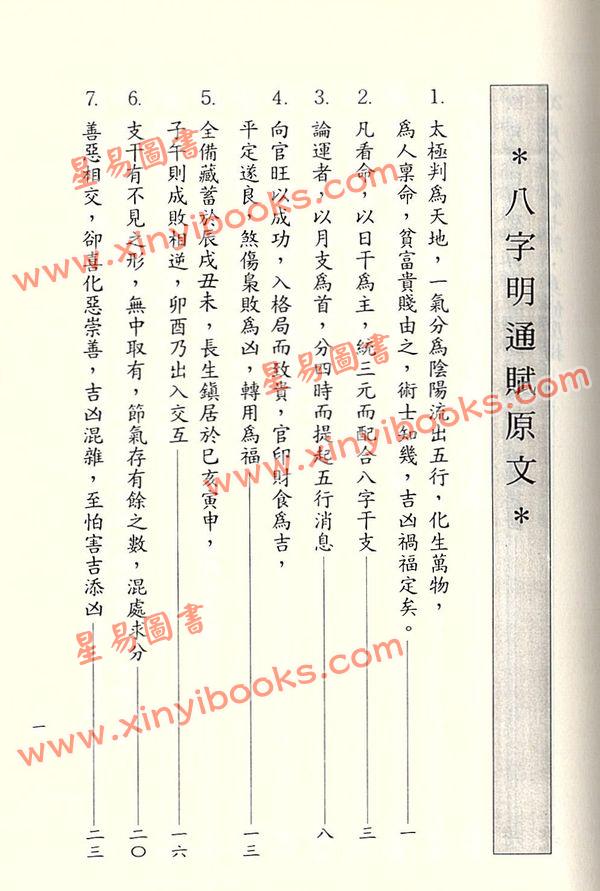 ＊八字明通賦原文＊
1. 太極判爲天地，一氣分爲陰陽流出五行，化生萬物，
爲人稟命，貧富貴賤由之，術士知幾，吉凶禍福定矣。 一
2. 凡看命，以日干爲主，統三元而配合八字干支 三
3. 論運者，以月支爲首，分四時而提起五行消息 八
4. 向官旺以成功，入格局而致貴，官印財食爲吉，
平定遂良，煞傷梟敗爲凶，轉用爲福， 一三
5. 全備藏蓄於辰戌丑未，長生鎮居於巳亥寅申，
子午則成敗相逆，卯酉乃出入交互 一六
6. 支干有不見之形，無中取有，節氣存有餘之數，混處求分 二〇
7. 善惡相交，卻喜化惡崇善，吉凶混雜，至怕害吉添凶 二三
一
星易圖書
www.xinyibooks.com
星易圖書
www.xinyibooks.com
星易圖書
www.xinyibooks.com